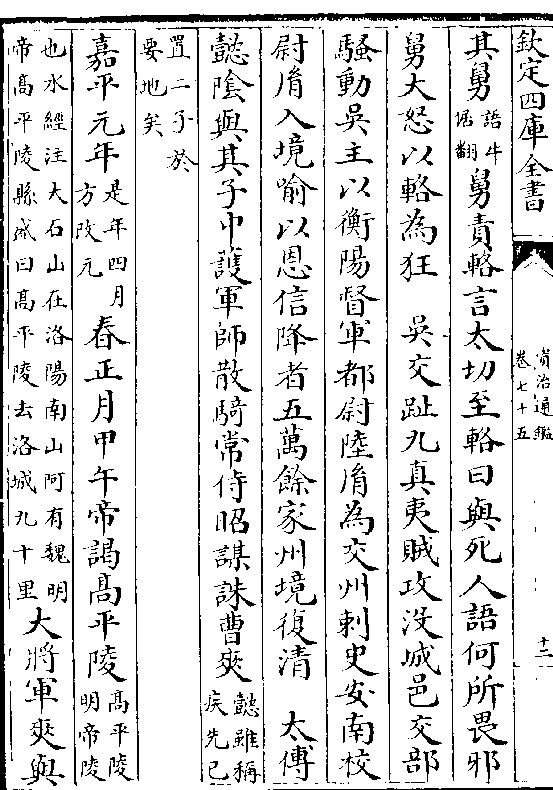 欽定四庫全書 資治通鑑卷七十五 十二
其舅語牛倨翻舅責輅言太切至輅曰與死人語何所畏邪
舅大怒以輅為狂 吳交趾九真夷賊攻没城邑交部
騷動吳主以衡陽督軍都尉陸𦙍為交州刺史安南校
尉𦙍入境喻以恩信降者五萬餘家州境復清 太傅
懿隂與其子中護軍師散騎常侍昭謀誅曹爽懿雖稱疾先已
置二子於要地矣
嘉平元年是年四月方改元春正月甲午帝謁髙平陵髙平陵明帝陵
也水經注大石山在洛陽南山阿有魏明帝髙平陵孫盛曰髙平陵去洛城九十里大將軍爽與